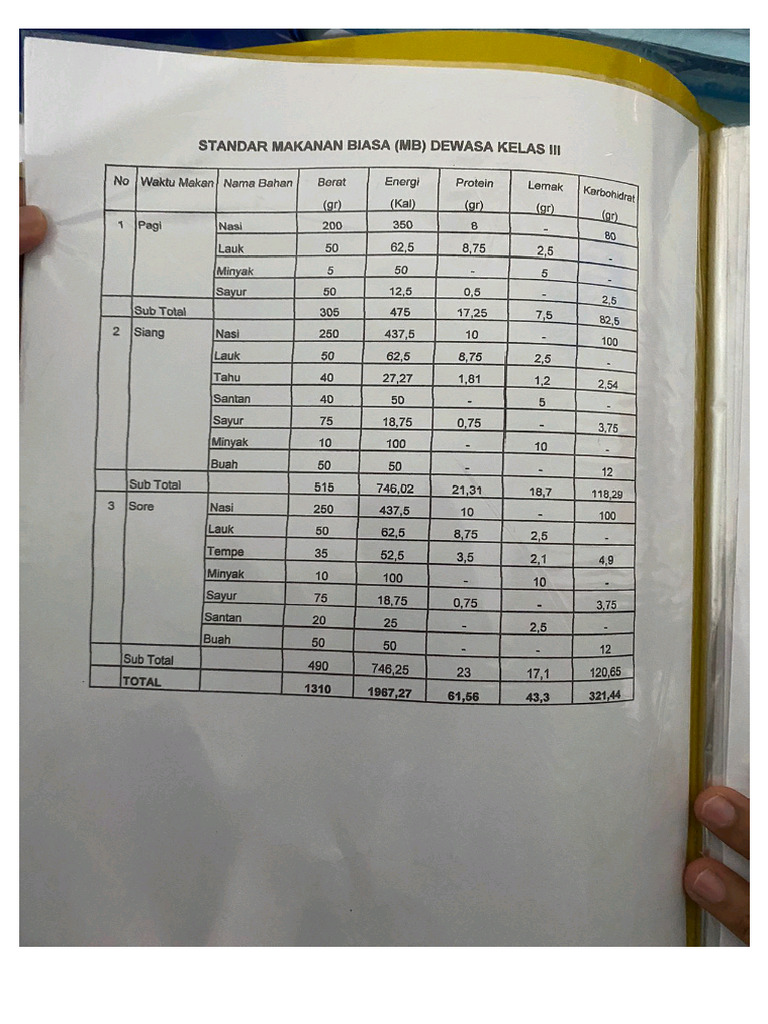 STANDAR MAKANAN BIASA (MB) DEWASA KELAS III
No Waktu Makan Nama Bahan Berat (gr) Energi (Kal) Protein (gr) Lemak (gr) Karbohidrat (gr)
1 Pagi Nasi 200 350 8 - 80
Lauk 50 62,5 8,75 2,5 -
Minyak 5 50 - 5 -
Sayur 50 12,5 0,5 - 2,5
Sub Total 305 475 17,25 7,5 82,5
2 Siang Nasi 250 437,5 10 - 100
Lauk 50 62,5 8,75 2,5 -
Tahu 40 27,27 1,81 1,2 2,54
Santan 40 50 - 5 -
Sayur 75 18,75 0,75 - 3,75
Minyak 10 100 - 10 -
Buah 50 50 - - 12
Sub Total 515 746,02 21,31 18,7 118,29
3 Sore Nasi 250 437,5 10 - 100
Lauk 50 62,5 8,75 2,5 -
Tempe 35 52,5 3,5 2,1 4,9
Minyak 10 100 - 10 -
Sayur 75 18,75 0,75 - 3,75
Santan 20 25 - 2,5 -
Buah 50 50 - - 12
Sub Total 490 746,25 23 17,1 120,65
TOTAL 1310 1967,27 61,56 43,3 321,44